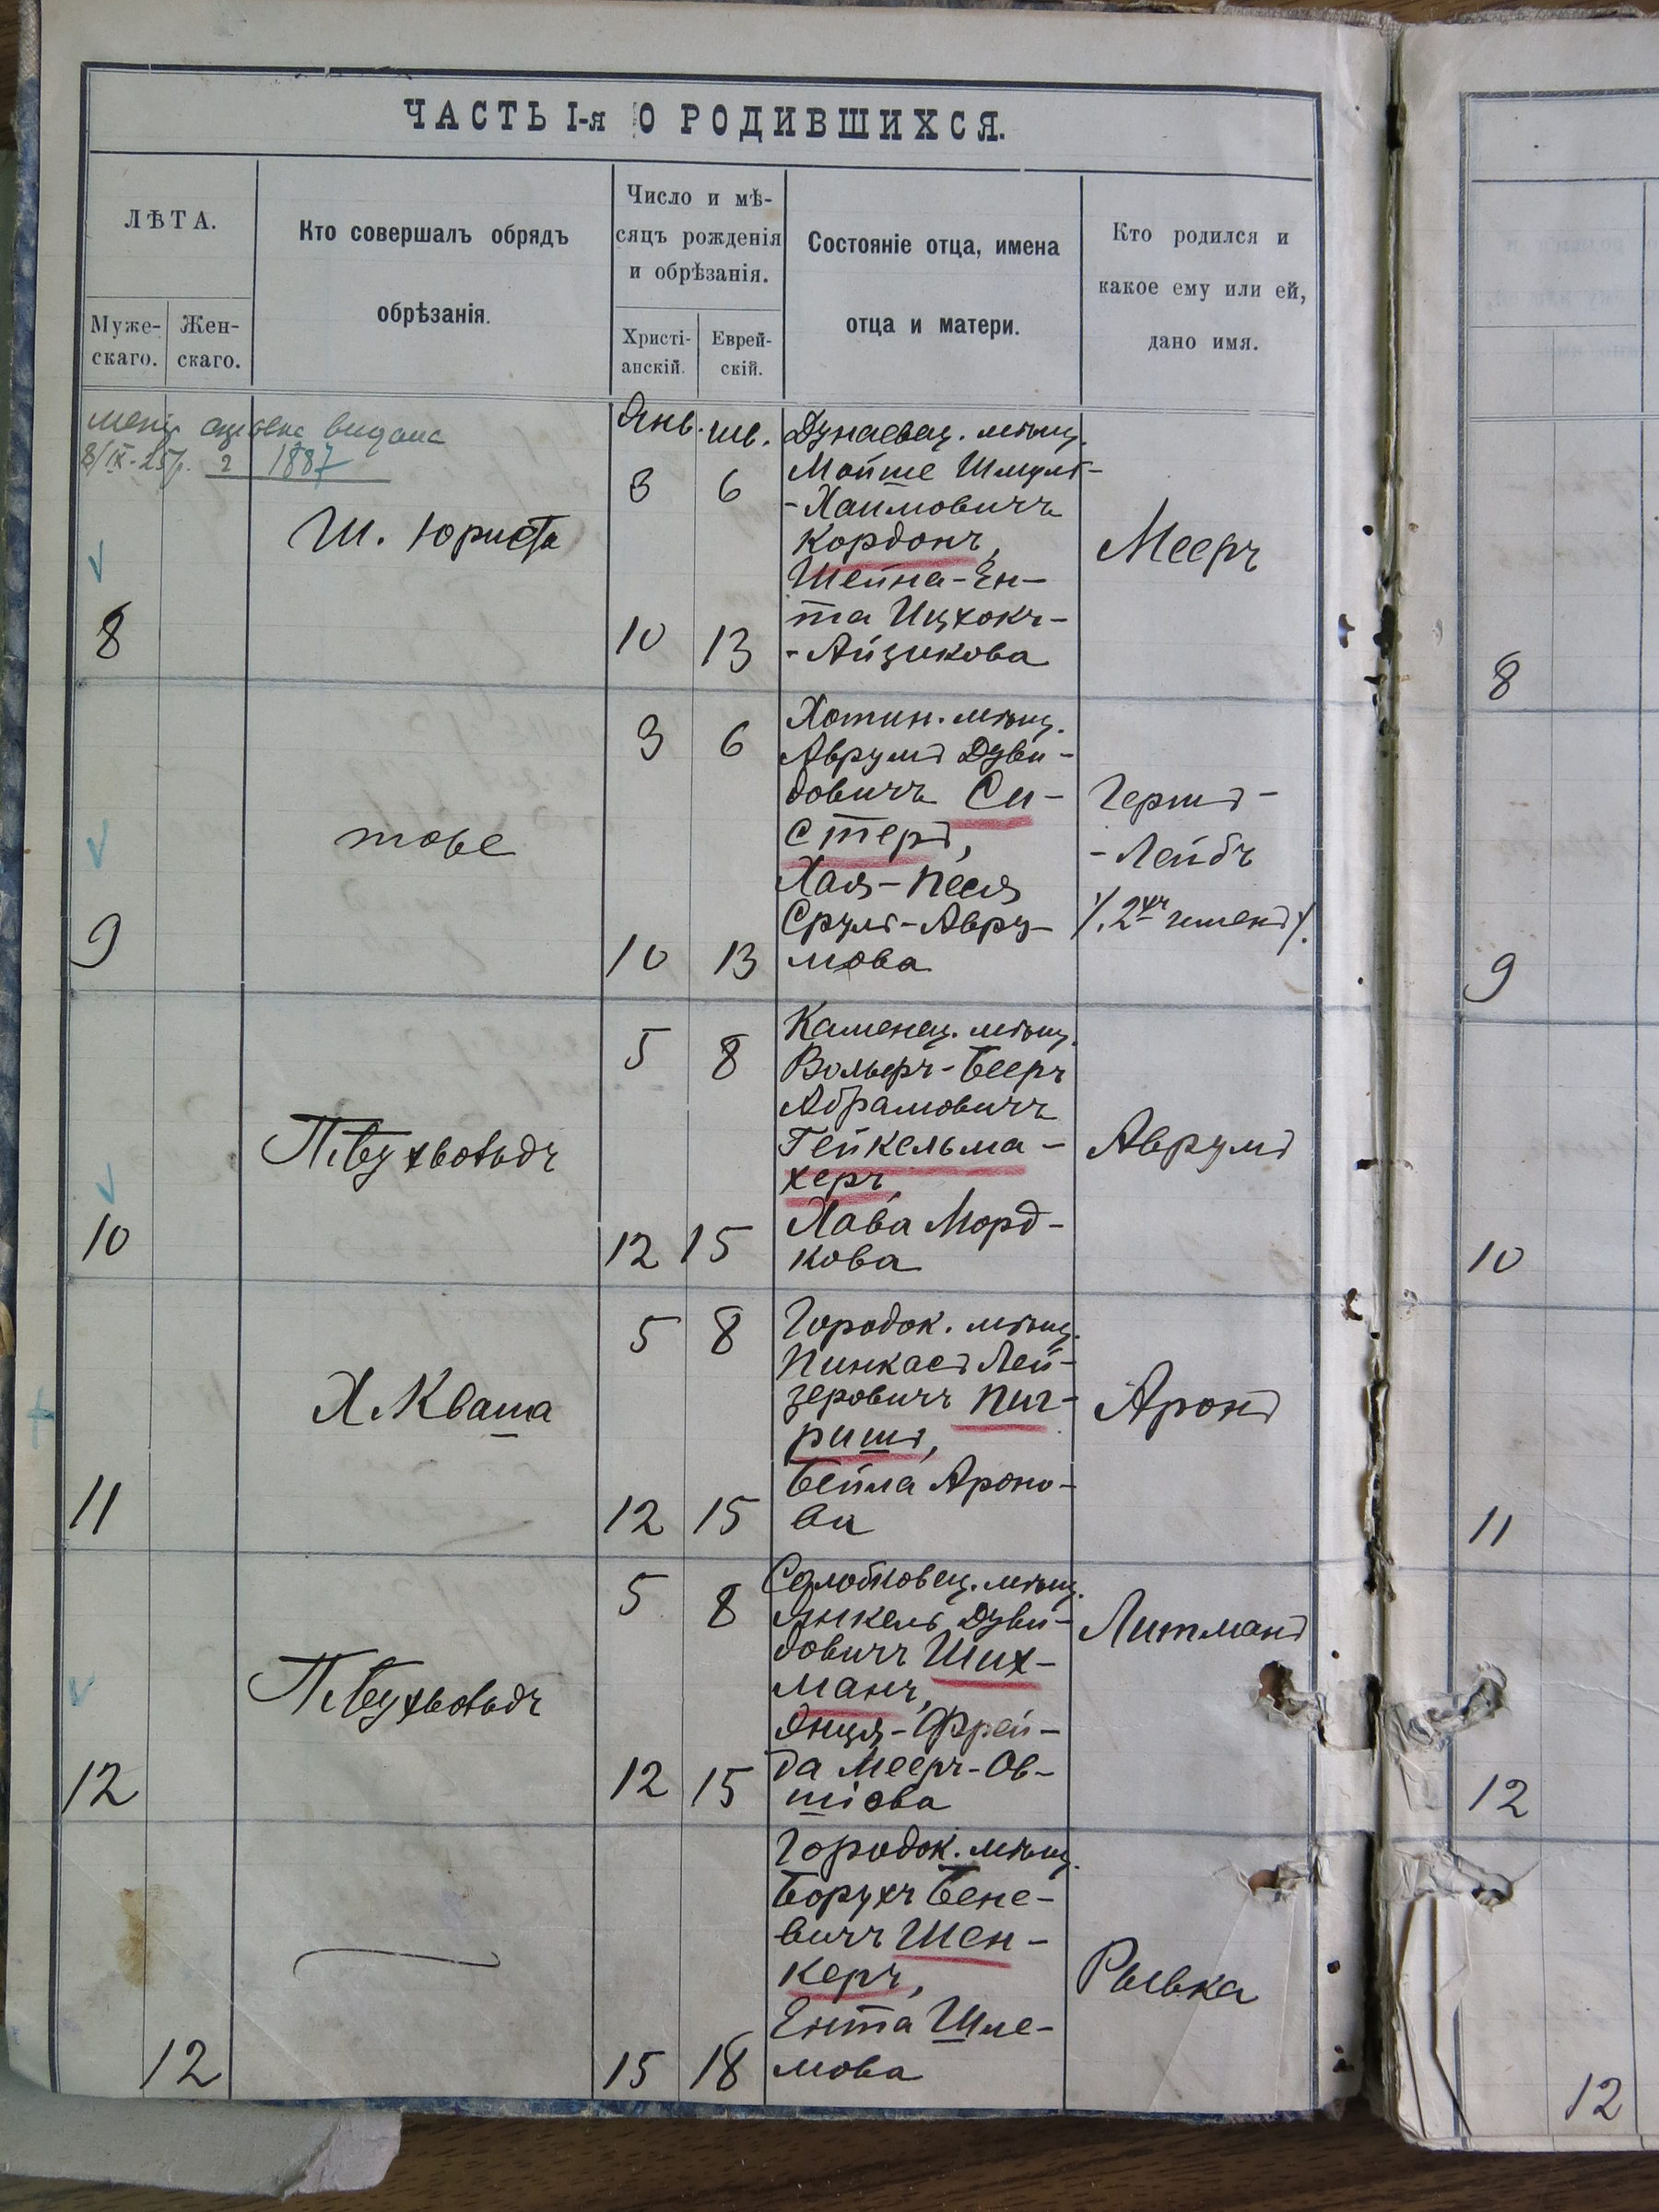 ЧАСТЬ I-я О РОДИВШИХСЯ.
ЛѢТА.
Муже-
скаго.
Жен-
скаго.
Кто совершалъ обрядъ
обрѣзанія.
Число и мѣ-
сяцъ рожденія
и обрѣзанія.
Христі-
анскій.
Еврей-
скій.
Состояніе отца, имена
отца и матери.
Кто родился и
какое ему или ей,
дано имя.
видана
8/IX-25р. 2 1887
8
Ш. Юриста
Янв. шв.
3 6
10 13
Дунаевец. мѣщ.
Мойше Шмуль-
-Хаимовичъ
Кордонъ,
Шейна-Ен-
та Ицхокъ-
-Айзикова
Мееръ
8
9
тоже
3 6
10 13
Хотин. мѣщ.
Аврумъ Дуви-
довичъ Си-
стеръ,
Хая-Песя
Сруль-Авру-
мова
Гершъ-
-Лейбъ
/. 2хъ именъ /.
9
10
5 8
12 15
Каменец. мѣщ.
Вольфъ-Бееръ
Абрамовичъ
Гейкельма-
херъ,
Хава Морд-
кова
Аврумъ
10
11
Х. Кваша
5 8
12 15
Городок. мѣщ.
Пинкасъ Лей-
зеровичъ Пиг-
ришъ,
Бейла Ароно-
ва
Аронъ
11
12
5 8
12 15
Солобковец. мѣщ.
Янкель Дуви-
довичъ Ших-
манъ,
Янця-Фрей-
да Мееръ-Ов-
шіова
Литманъ
12
12
15 18
Городок. мѣщ.
Борухъ Бене-
вичъ Шен-
керъ,
Ента Шле-
мова
Рывка
12